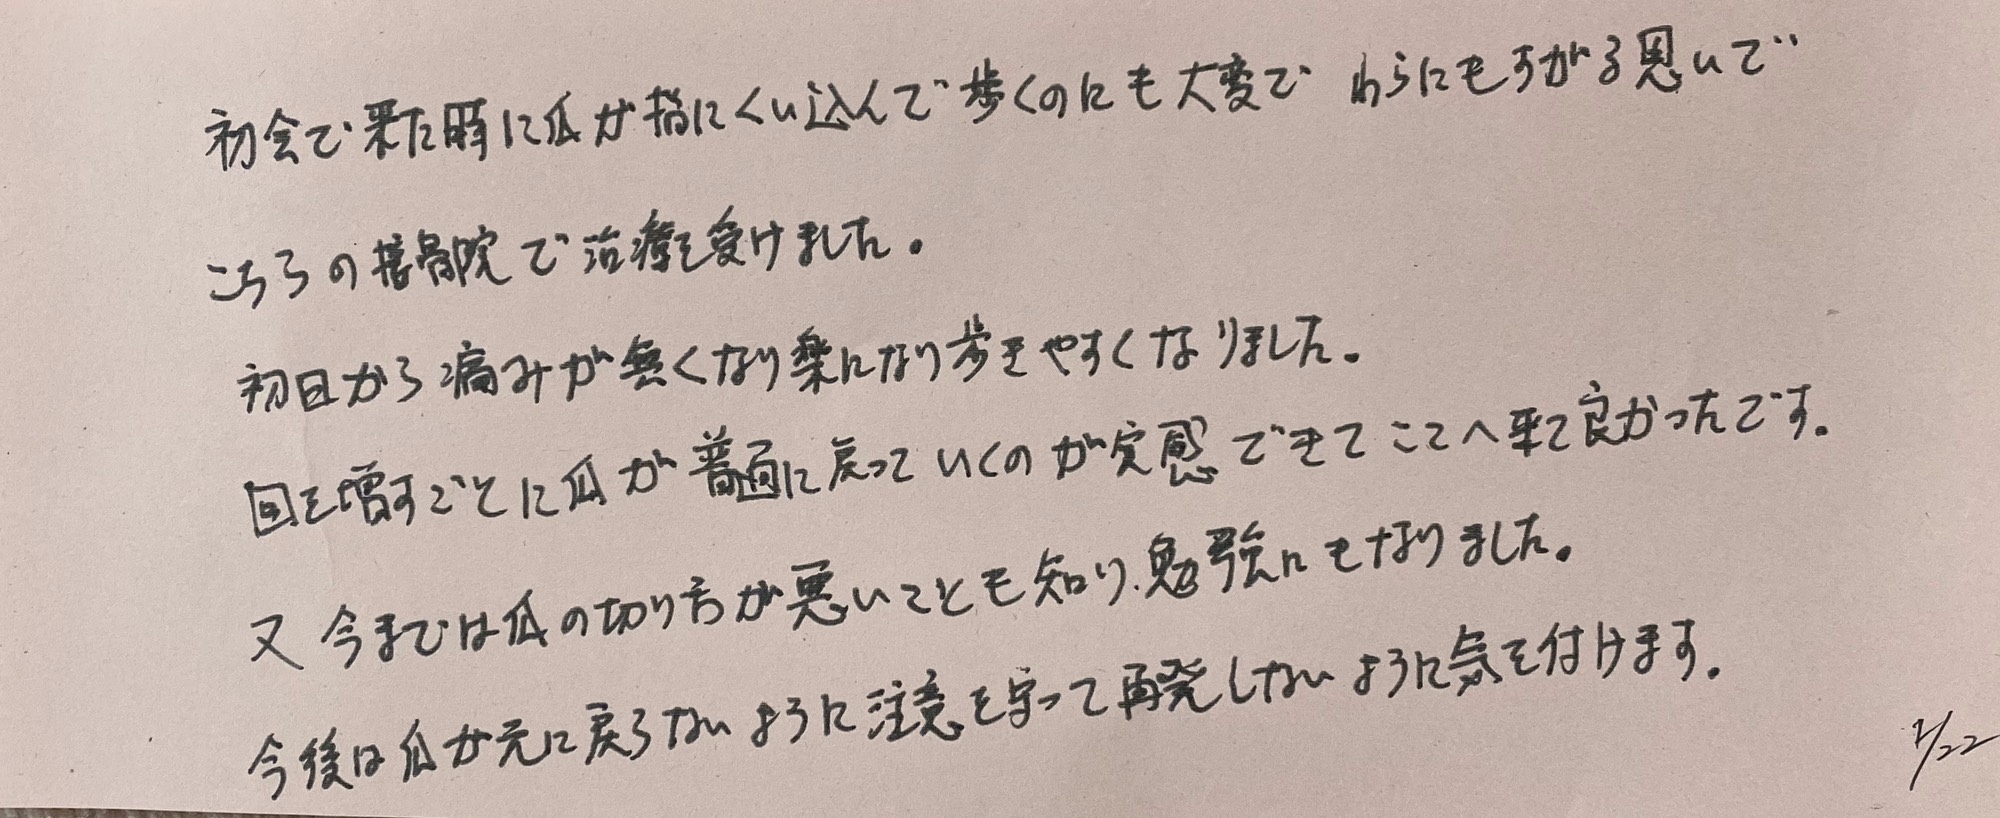 初会で来た時に爪が指にくい込んで歩くのにも大変で わらにもすがる思いで
こちらの接骨院で治療を受けました。
初日から痛みが無くなり楽になり歩きやすくなりました。
回を増すごとに爪が普通に戻っていくのが実感できてここへ来て良かったです。
又 今までは爪の切り方が悪いことも知り、勉強にもなりました。
今後は爪が元に戻らないように注意を守って再発しないように気を付けます。
1/22